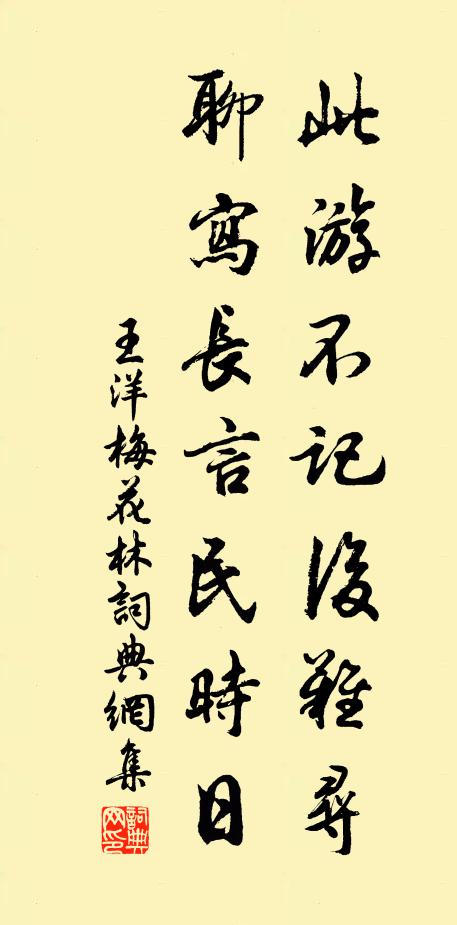 此游不記後難尋
聊寫長言民時日
王洋梅花林詞典網集
詞典網印